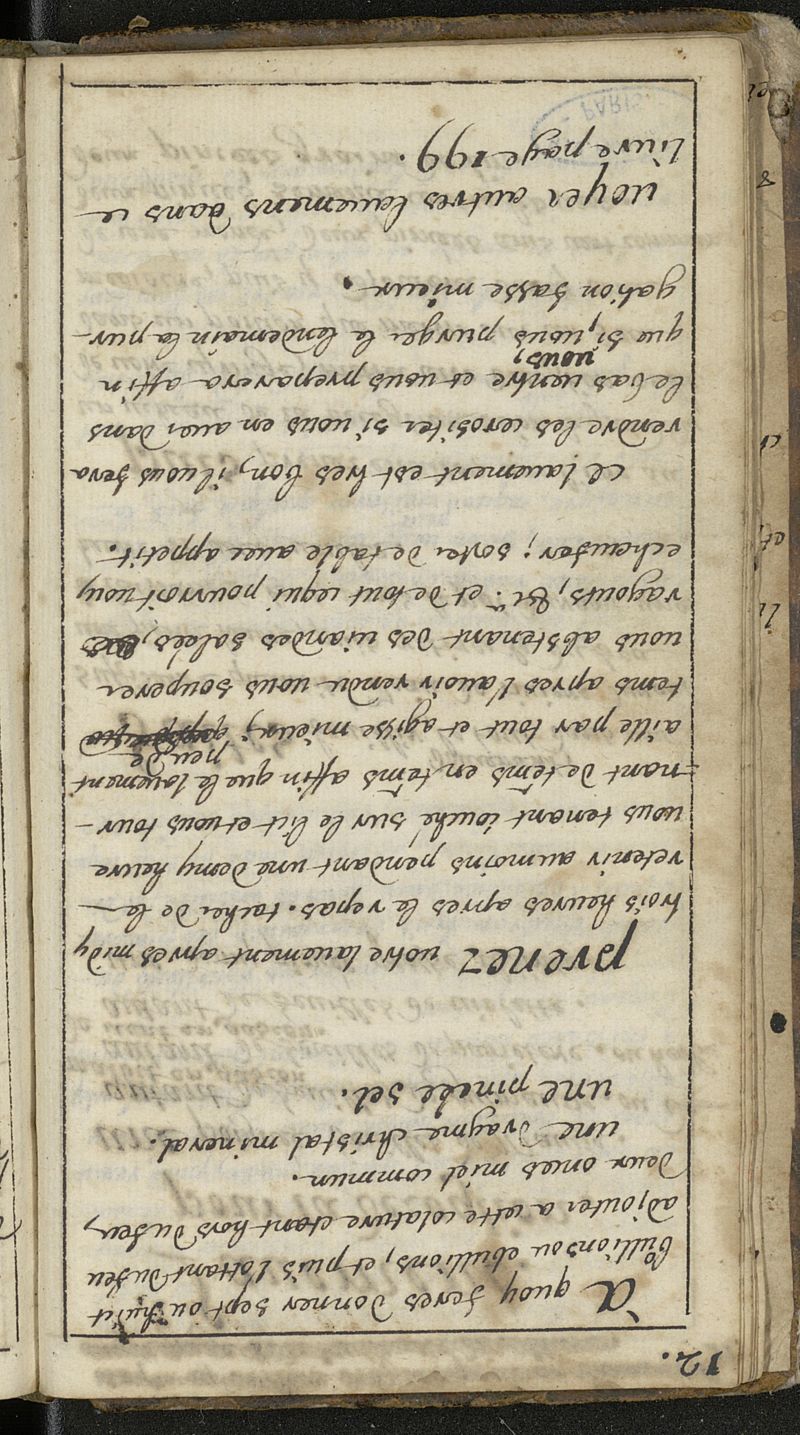 12.
À quoy feres donner sept ou huit
büllions ou ebullions, et puis l'ottant du feu
adjouter a cette colature etant hors du feu,
deux onces miel commun.
une dragme christal mineral.
une pincée sel.
prenez votre lauement apres midy
trois heures apres le repas. tachez de le
retenir aumoins pendant une demy heure
vous tenant couché sur le lit et vous tour-
-nant de tems en tems affin que le lauement
aille par tout et agisse mieux; peu de
tems apres l'auoir rendu vous souperez
vous abstenant des viandes salées,
ragouts, &c. et de tout ce qui pourroit vous
echaufer; sortez de table auec appetit.
ce lauement est tres bon, il vous fera
rendre les cerositez si vous en auez dans
le bas ventre et vous preparera affin
que si, vous, vous purgez le lendemain la pur-
gation fasse mieux.
voyez autres lauemens dans ce
liure page 199.
PARIS